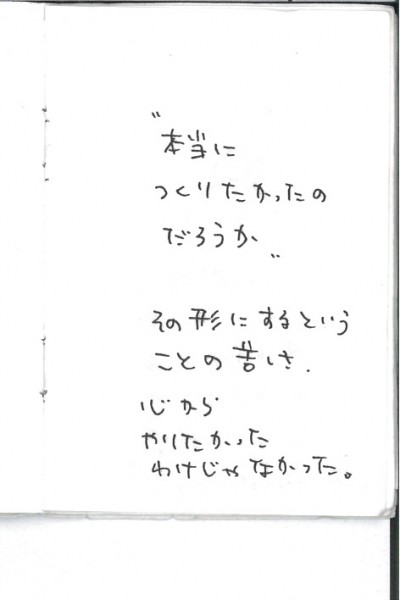 "本当に
つくりたかったの
だろうか"
その形にするという
ことの苦しさ.
心から
やりたかった
わけじゃなかった。